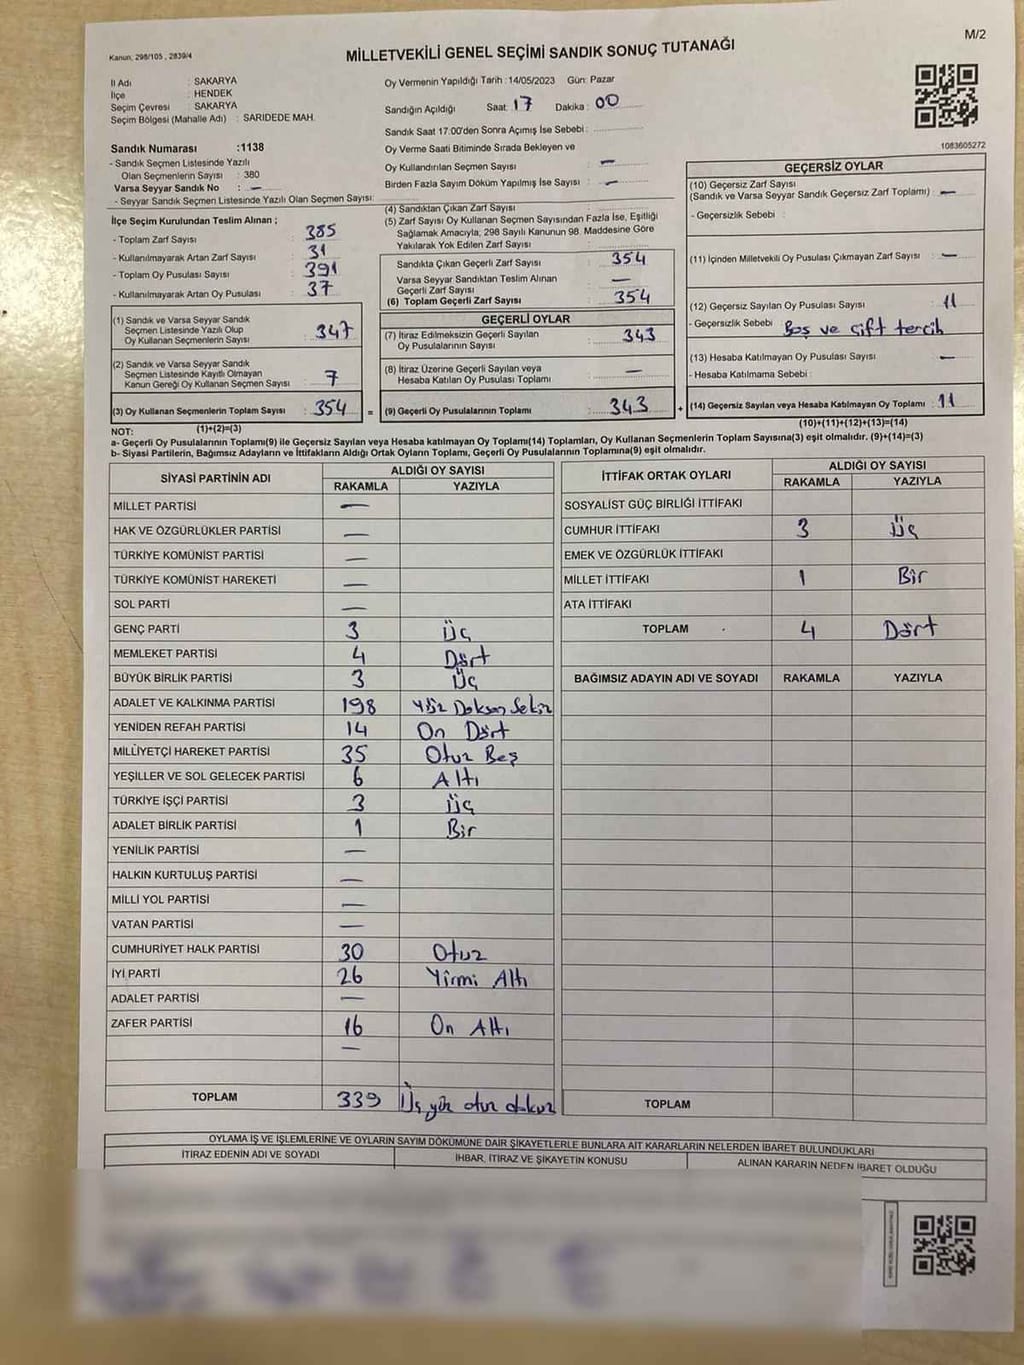 Kanun, 298/105 , 2839/4
MİLLETVEKİLİ GENEL SEÇİMİ SANDIK SONUÇ TUTANAĞI
M/2
İl Adı : SAKARYA
İlçe : HENDEK
Seçim Çevresi : SAKARYA
Seçim Bölgesi (Mahalle Adı) : SARIDEDE MAH.
Sandık Numarası :1138
- Sandık Seçmen Listesinde Yazılı
Olan Seçmenlerin Sayısı : 380
Varsa Seyyar Sandık No : —
- Seyyar Sandık Seçmen Listesinde Yazılı Olan Seçmen Sayısı:
İlçe Seçim Kurulundan Teslim Alınan ;
- Toplam Zarf Sayısı : 385
- Kullanılmayarak Artan Zarf Sayısı : 31
- Toplam Oy Pusulası Sayısı : 391
- Kullanılmayarak Artan Oy Pusulası : 37
(1) Sandık ve Varsa Seyyar Sandık
Seçmen Listesinde Yazılı Olup
Oy Kullanan Seçmenlerin Sayısı : 347
(2) Sandık ve Varsa Seyyar Sandık
Seçmen Listesinde Kayıtlı Olmayan
Kanun Gereği Oy Kullanan Seçmen Sayısı : 7
(3) Oy Kullanan Seçmenlerin Toplam Sayısı : 354 =
(1)+(2)=(3)
Oy Vermenin Yapıldığı Tarih :14/05/2023 Gün: Pazar
Sandığın Açıldığı Saat: 17 Dakika : 00
Sandık Saat 17.00'den Sonra Açımış İse Sebebi :
Oy Verme Saati Bitiminde Sırada Bekleyen ve
Oy Kullandırılan Seçmen Sayısı : —
Birden Fazla Sayım Döküm Yapılmış İse Sayısı : —
(4) Sandıktan Çıkan Zarf Sayısı :
(5) Zarf Sayısı Oy Kullanan Seçmen Sayısından Fazla İse, Eşitliği
Sağlamak Amacıyla; 298 Sayılı Kanunun 98. Maddesine Göre
Yakılarak Yok Edilen Zarf Sayısı :
Sandıkta Çıkan Geçerli Zarf Sayısı : 354
Varsa Seyyar Sandıktan Teslim Alınan
Geçerli Zarf Sayısı : —
(6) Toplam Geçerli Zarf Sayısı : 354
GEÇERLİ OYLAR
(7) İtiraz Edilmeksizin Geçerli Sayılan
Oy Pusulalarının Sayısı : 343
(8) İtiraz Üzerine Geçerli Sayılan veya
Hesaba Katılan Oy Pusulası Toplamı : —
(9) Geçerli Oy Pusulalarının Toplamı : 343 +
1083605272
GEÇERSİZ OYLAR
(10) Geçersiz Zarf Sayısı
(Sandık ve Varsa Seyyar Sandık Geçersiz Zarf Toplamı) : —
- Geçersizlik Sebebi :
(11) İçinden Milletvekili Oy Pusulası Çıkmayan Zarf Sayısı : —
(12) Geçersiz Sayılan Oy Pusulası Sayısı : 11
- Geçersizlik Sebebi : Boş ve çift tercih
(13) Hesaba Katılmayan Oy Pusulası Sayısı : —
- Hesaba Katılmama Sebebi :
(14) Geçersiz Sayılan veya Hesaba Katılmayan Oy Toplamı : 11
(10)+(11)+(12)+(13)=(14)
NOT:
a- Geçerli Oy Pusulalarının Toplamı(9) ile Geçersiz Sayılan veya Hesaba katılmayan Oy Toplamı(14) Toplamları, Oy Kullanan Seçmenlerin Toplam Sayısına(3) eşit olmalıdır. (9)+(14)=(3)
b- Siyasi Partilerin, Bağımsız Adayların ve İttifakların Aldığı Ortak Oyların Toplamı, Geçerli Oy Pusulalarının Toplamına(9) eşit olmalıdır.
SİYASİ PARTİNİN ADI ALDIĞI OY SAYISI
RAKAMLA YAZIYLA
MİLLET PARTİSİ —
HAK VE ÖZGÜRLÜKLER PARTİSİ —
TÜRKİYE KOMÜNİST PARTİSİ —
TÜRKİYE KOMÜNİST HAREKETİ —
SOL PARTİ —
GENÇ PARTİ 3 Üç
MEMLEKET PARTİSİ 4 Dört
BÜYÜK BİRLİK PARTİSİ 3 Üç
ADALET VE KALKINMA PARTİSİ 198 Yüz Doksan Sekiz
YENİDEN REFAH PARTİSİ 14 On Dört
MİLLİYETÇİ HAREKET PARTİSİ 35 Otuz Beş
YEŞİLLER VE SOL GELECEK PARTİSİ 6 Altı
TÜRKİYE İŞÇİ PARTİSİ 3 Üç
ADALET BİRLİK PARTİSİ 1 Bir
YENİLİK PARTİSİ —
HALKIN KURTULUŞ PARTİSİ —
MİLLİ YOL PARTİSİ —
VATAN PARTİSİ —
CUMHURİYET HALK PARTİSİ 30 Otuz
İYİ PARTİ 26 Yirmi Altı
ADALET PARTİSİ —
ZAFER PARTİSİ 16 On Altı
—
TOPLAM 339 Üç yüz otuz dokuz
İTTİFAK ORTAK OYLARI ALDIĞI OY SAYISI
RAKAMLA YAZIYLA
SOSYALİST GÜÇ BİRLİĞİ İTTİFAKI
CUMHUR İTTİFAKI 3 Üç
EMEK VE ÖZGÜRLÜK İTTİFAKI
MİLLET İTTİFAKI 1 Bir
ATA İTTİFAKI
TOPLAM 4 Dört
BAĞIMSIZ ADAYIN ADI VE SOYADI RAKAMLA YAZIYLA
TOPLAM
OYLAMA İŞ VE İŞLEMLERİNE VE OYLARIN SAYIM DÖKÜMÜNE DAİR ŞİKAYETLERLE BUNLARA AİT KARARLARIN NELERDEN İBARET BULUNDUKLARI
İTİRAZ EDENİN ADI VE SOYADI İHBAR, İTİRAZ VE ŞİKAYETİN KONUSU ALINAN KARARIN NEDEN İBARET OLDUĞU